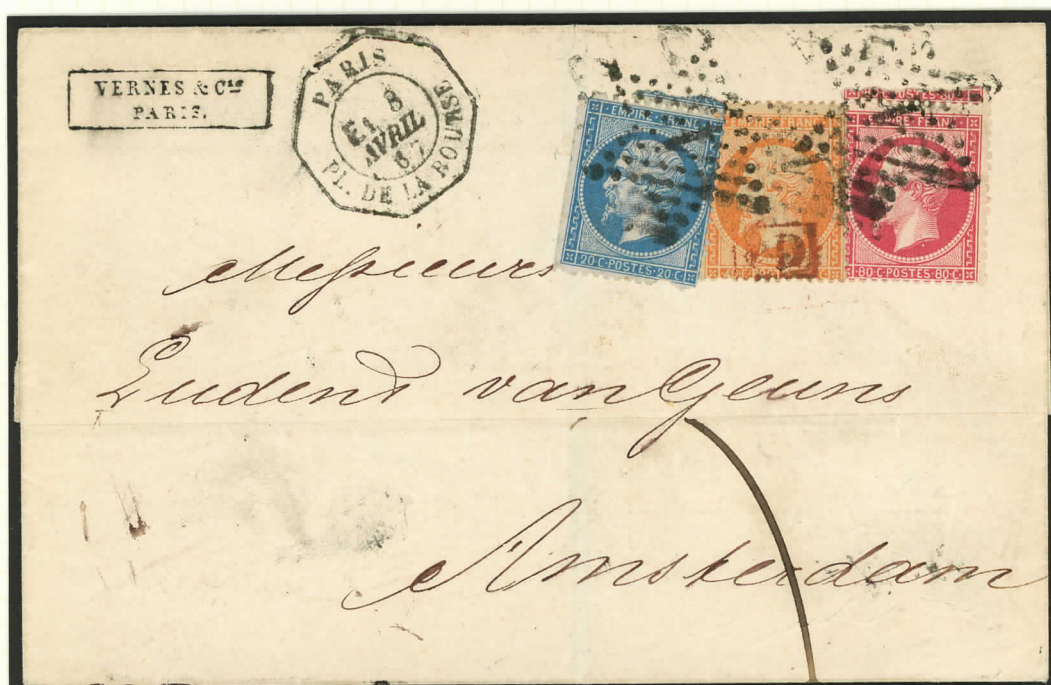 VERNES & Cie
PARIS.
PARIS
E1
8
AVRIL
67
PL. DE LA BOURSE
EMPIRE FRANC
20 C·POSTES·20 C
EMPIRE FRANC
POSTES 80
EMPIRE FRANC
80 C·POSTES·80 C
Messieurs
Ludend van Geuns
Amsterdam